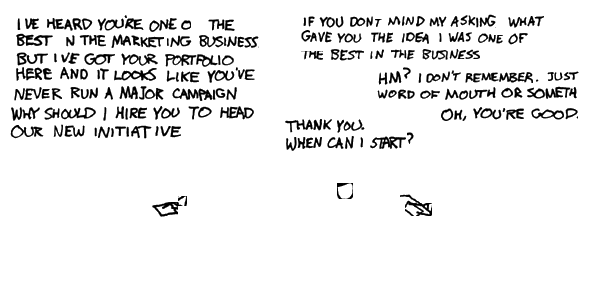 I'VE HEARD YOU'RE ONE O THE
BEST N THE MARKETING BUSINESS
BUT I'VE GOT YOUR PORTFOLIO
HERE AND IT LOOKS LIKE YOU'VE
NEVER RUN A MAJOR CAMPAIGN
WHY SHOULD I HIRE YOU TO HEAD
OUR NEW INITIATIVE
IF YOU DON'T MIND MY ASKING WHAT
GAVE YOU THE IDEA I WAS ONE OF
THE BEST IN THE BUSINESS
HM? I DON'T REMEMBER. JUST
WORD OF MOUTH OR SOMETH
OH, YOU'RE GOOD.
THANK YOU.
WHEN CAN I START?